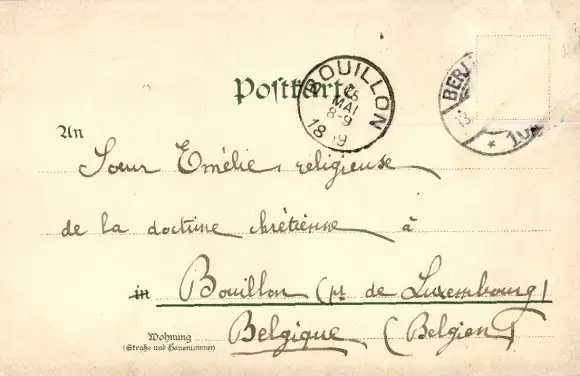 Postkarte
BOUILLON
MAI
8-9
18 9
BERL
An
Sœur Emélie, religieuse
de la doctrine chrétienne à
in Bouillon (pr de Luxembourg)
Wohnung Belgique (Belgien)
(Straße und Hausnummer)